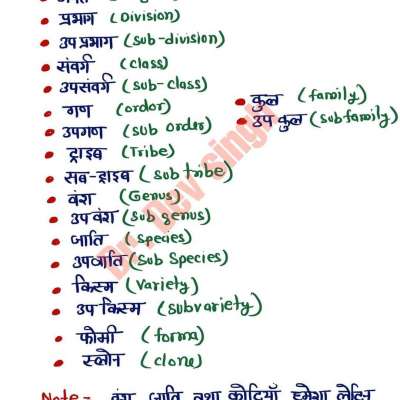 प्रभाग (Division)
उप प्रभाग (sub-division)
संवर्ग (class)
उपसंवर्ग (sub-class)
गण (ordor)
उपगण (sub order)
ट्राइब (Tribe)
सब-ट्राइब (sub tribe)
वंश (Genus)
उप वंश (sub genus)
जाति (species)
उपजाति (sub Species)
किस्म (variety)
उप किस्म (subvariety)
फोर्मा (forma)
क्लोन (clone)
कुल (family)
उप कुल (subfamily)
Dr. Dev singh
Note:- वंश, जाति तथा कोटियाँ हमेशा